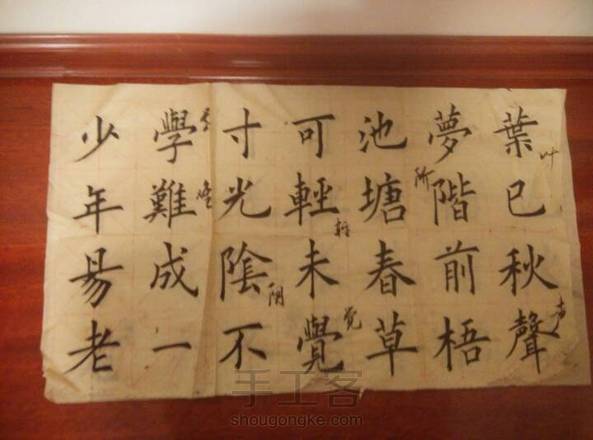 少年易老
學難成一
学
难
寸光陰不
阴
可輕未覺
轻
觉
池塘春草
夢階前梧
阶
葉已秋聲
叶
声
手工客
shougongke.com